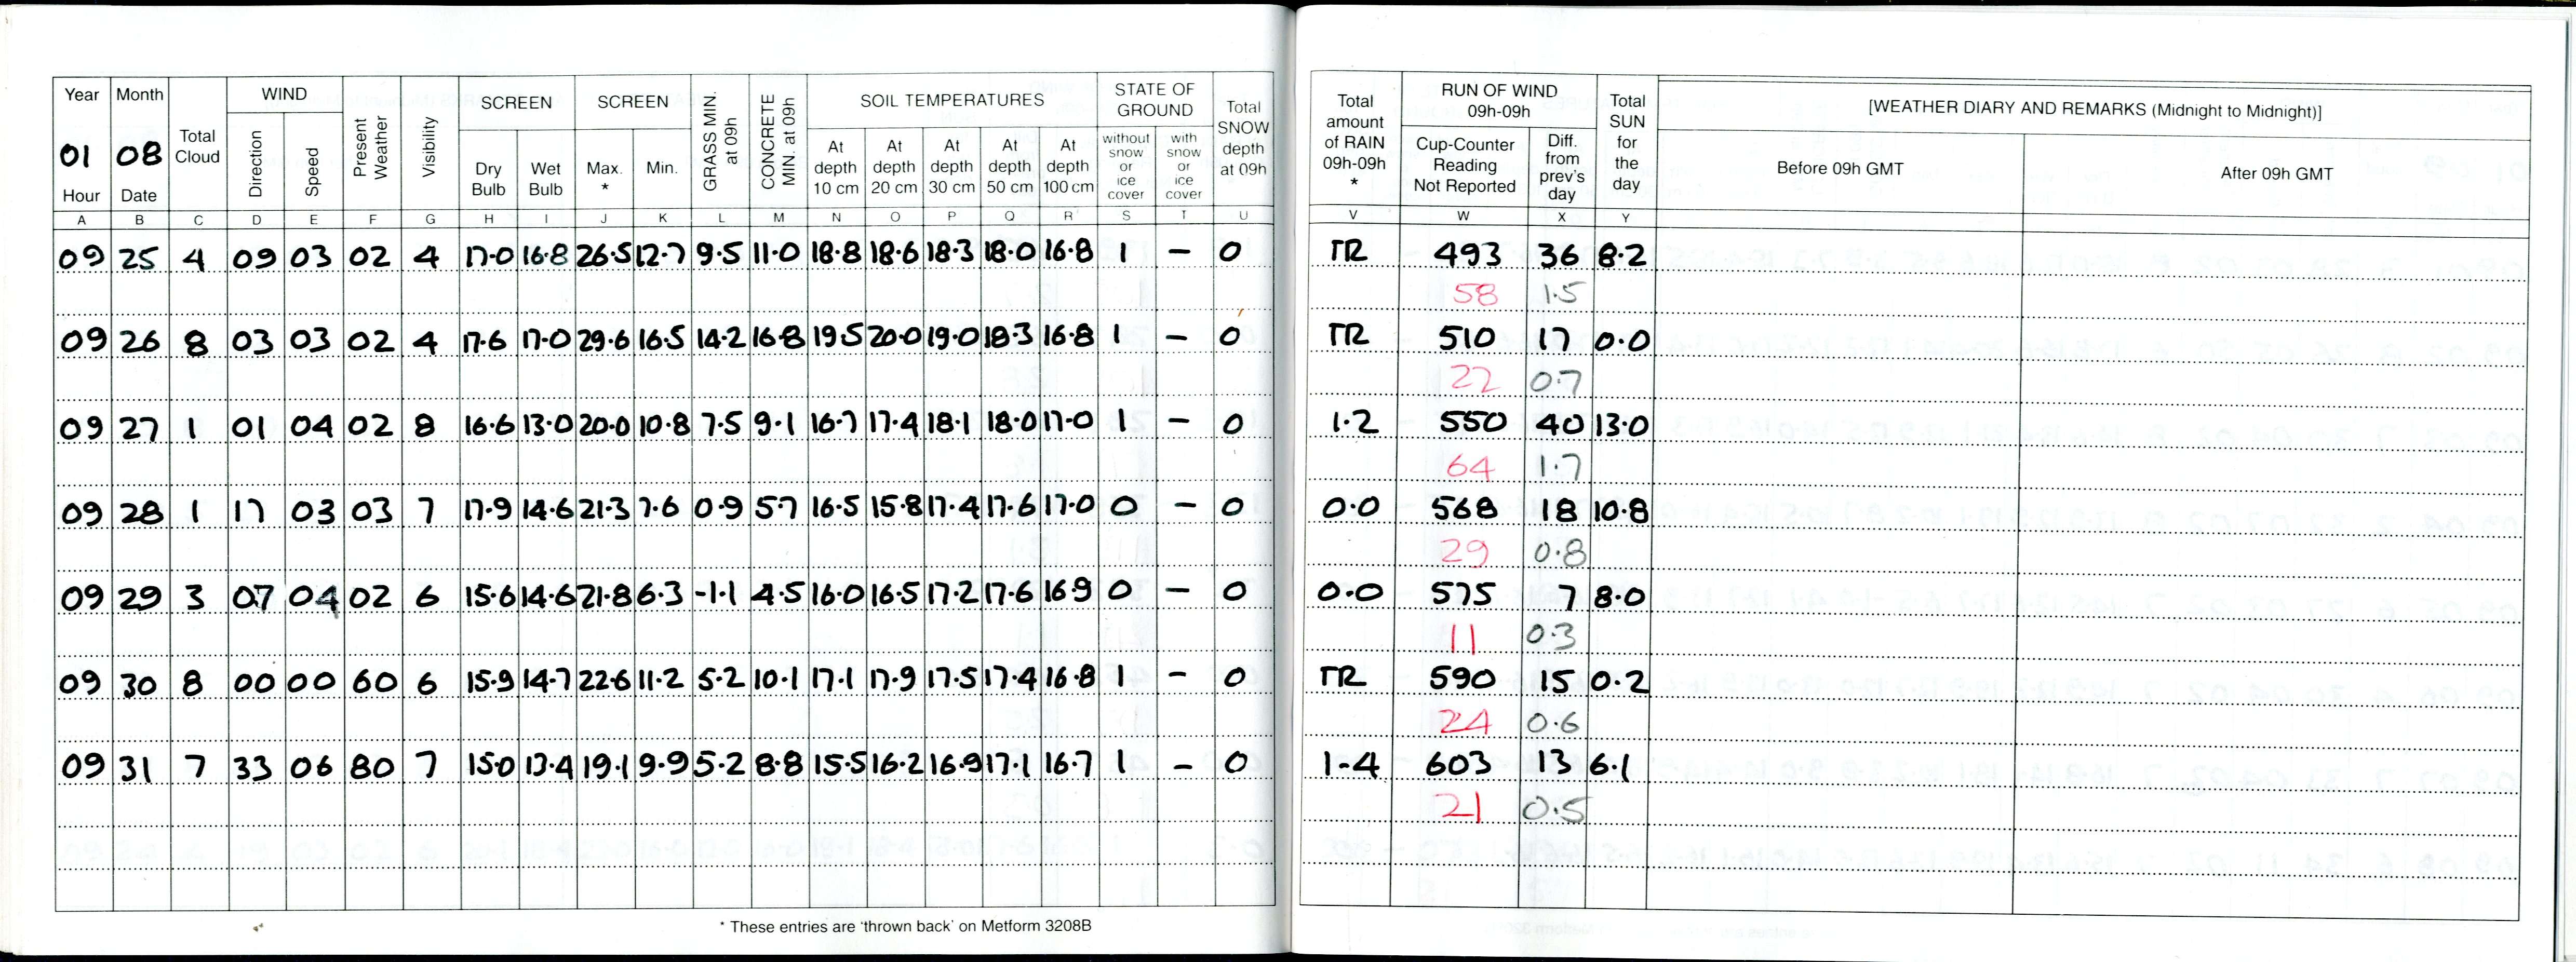 Year Month Total Cloud WIND Present Weather Visibility SCREEN SCREEN GRASS MIN. at 09h CONCRETE MIN. at 09h SOIL TEMPERATURES STATE OF GROUND Total SNOW depth at 09h Total amount of RAIN 09h-09h * RUN OF WIND 09h-09h Total SUN for the day [WEATHER DIARY AND REMARKS (Midnight to Midnight)]
01 08 Direction Speed Dry Bulb Wet Bulb Max. * Min. At depth 10 cm At depth 20 cm At depth 30 cm At depth 50 cm At depth 100 cm without snow or ice cover with snow or ice cover Cup-Counter Reading Not Reported Diff. from prev's day Before 09h GMT After 09h GMT
Hour Date
A B C D E F G H I J K L M N O P Q R S T U V W X Y
09 25 4 09 03 02 4 17.0 16.8 26.5 12.7 9.5 11.0 18.8 18.6 18.3 18.0 16.8 1 – 0 TR 493 36 8.2
58 1.5
09 26 8 03 03 02 4 17.6 17.0 29.6 16.5 14.2 16.8 19.5 20.0 19.0 18.3 16.8 1 – 0 TR 510 17 0.0
22 0.7
09 27 1 01 04 02 8 16.6 13.0 20.0 10.8 7.5 9.1 16.7 17.4 18.1 18.0 17.0 1 – 0 1.2 550 40 13.0
64 1.7
09 28 1 17 03 03 7 17.9 14.6 21.3 7.6 0.9 5.7 16.5 15.8 17.4 17.6 17.0 0 – 0 0.0 568 18 10.8
29 0.8
09 29 3 07 04 02 6 15.6 14.6 21.8 6.3 -1.1 4.5 16.0 16.5 17.2 17.6 16.9 0 – 0 0.0 575 7 8.0
11 0.3
09 30 8 00 00 60 6 15.9 14.7 22.6 11.2 5.2 10.1 17.1 17.9 17.5 17.4 16.8 1 – 0 TR 590 15 0.2
24 0.6
09 31 7 33 06 80 7 15.0 13.4 19.1 9.9 5.2 8.8 15.5 16.2 16.9 17.1 16.7 1 – 0 1.4 603 13 6.1
21 0.5
* These entries are 'thrown back' on Metform 3208B